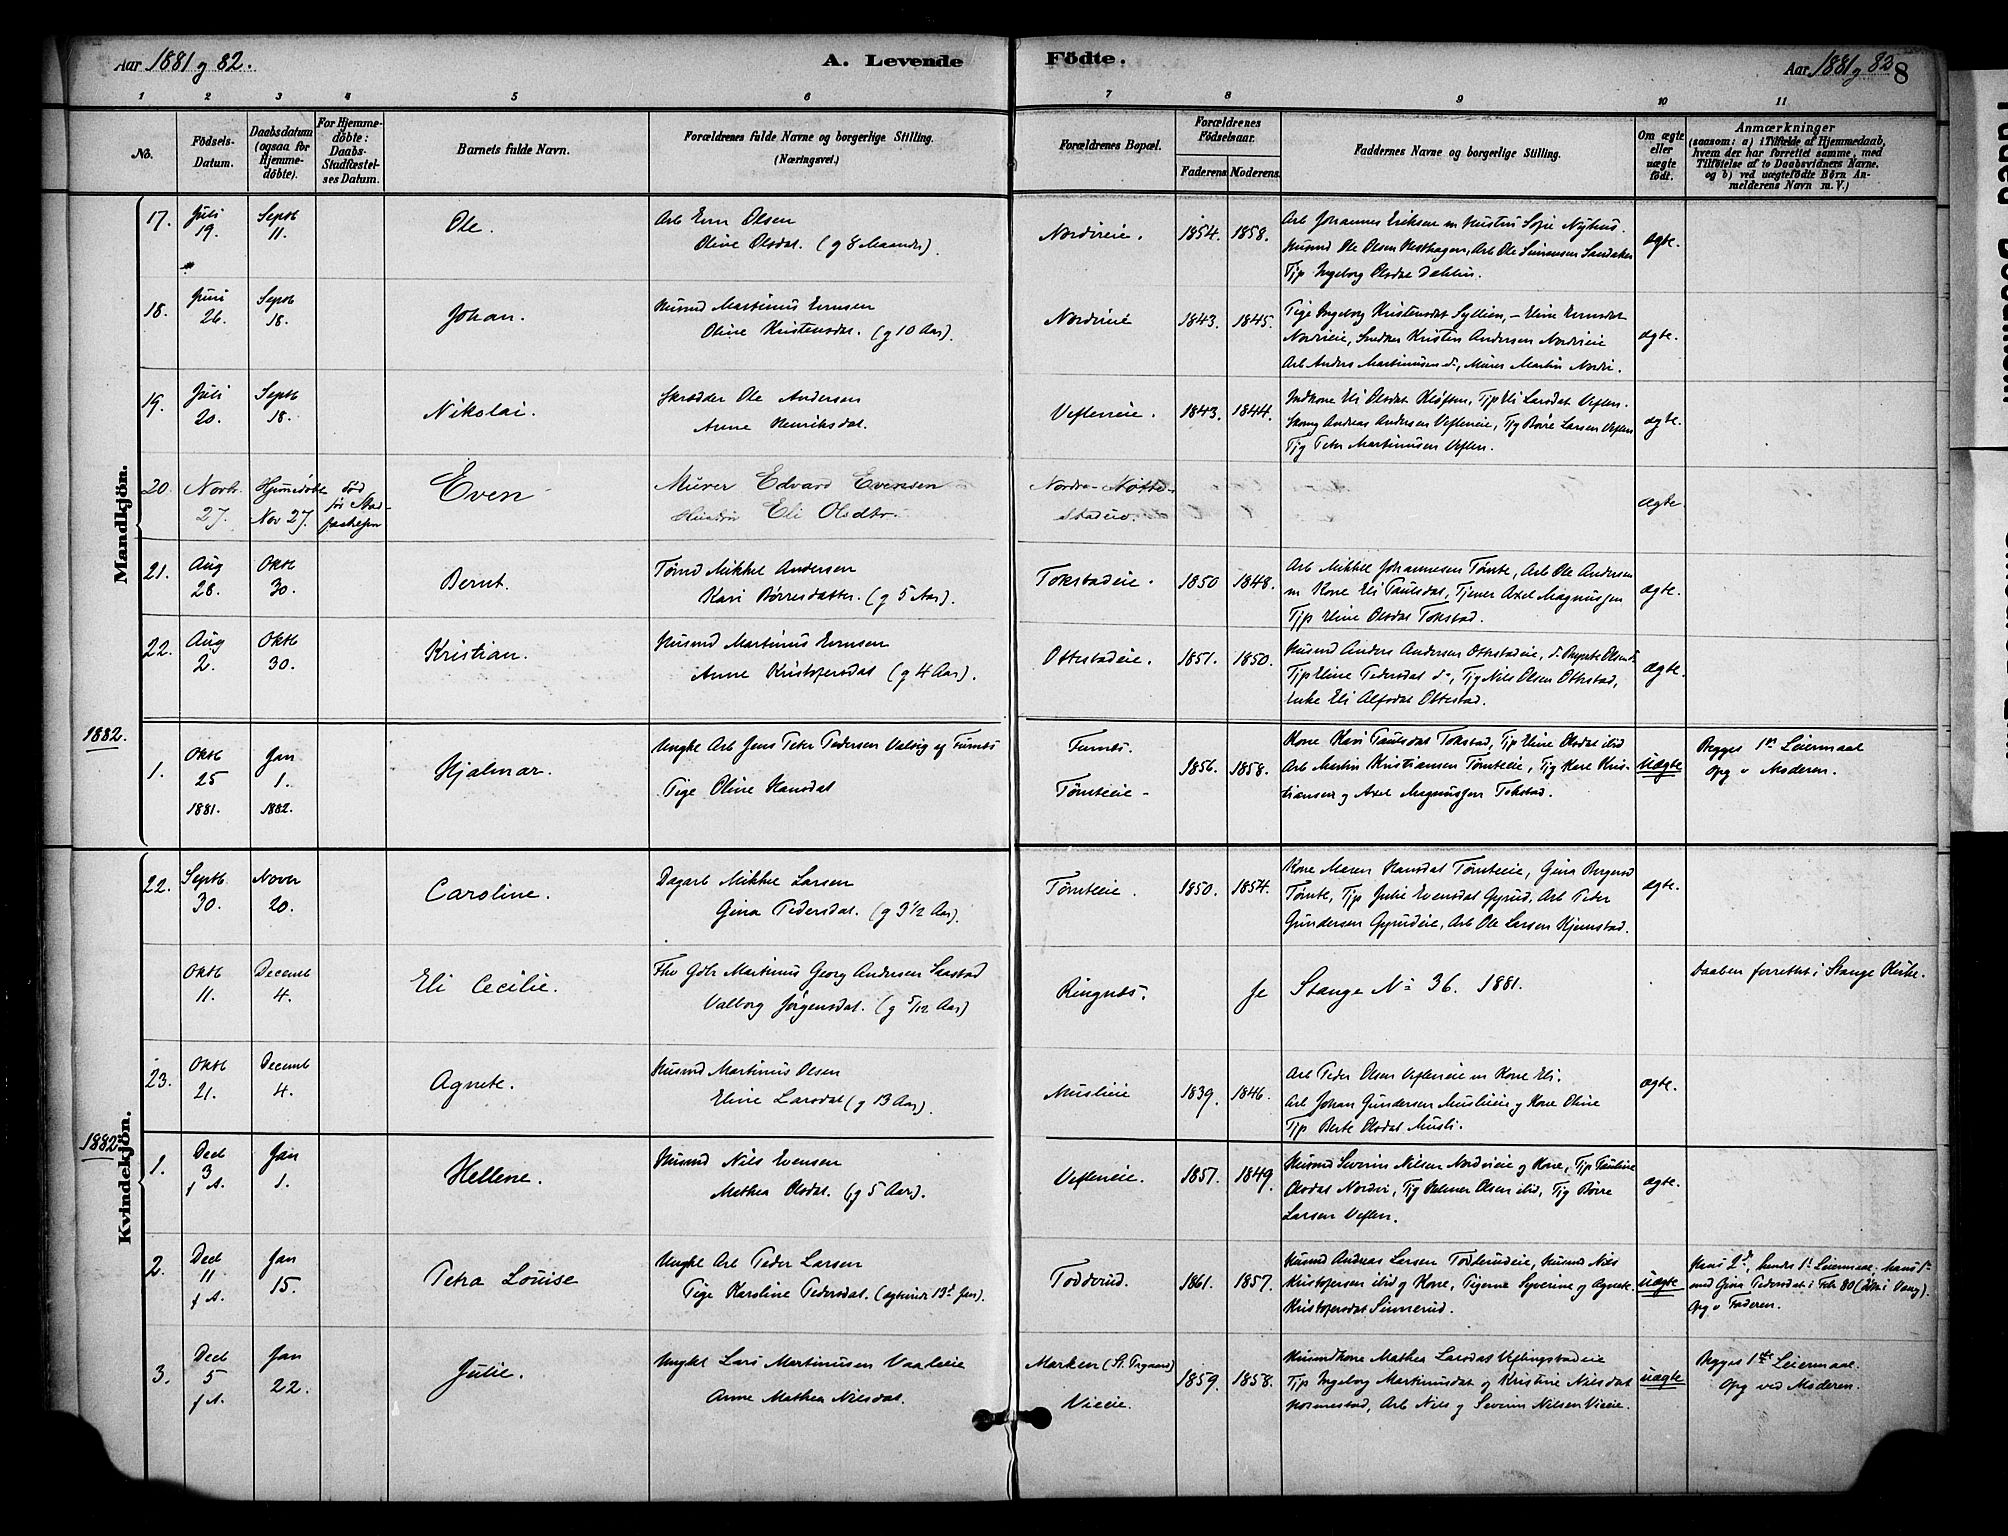 Aar 1881 g 82.
A. Levende Födte.
Aar 1881 g 82
8
1 2 3 4 5 6 7 8 9 10 11
No.
Födsels-Datum.
Daabsdatum (ogsaa for Hjemme-döbte).
For Hjemme-döbte: Daabs-Stadfæstel-ses Datum.
Barnets fulde Navn.
Forældrenes fulde Navne og borgerlige Stilling.
(Næringsvei.)
Forældrenes Bopæl.
Forældrenes Födselsaar.
Faderens. Moderens.
Faddernes Navne og borgerlige Stilling.
Om ægte eller uægte födt.
Anmærkninger
(saasom: a) i Tilfælde af Hjemmedaab,
hvem der har forrettet samme, med
Tilföielse af to Daabsvidners Navne.
og b) ved uægtefödte Börn An-
melderens Navn m. V.)
Mandkjön.
17. Juli 19. Septb 11. Ole. Arb Even Olsen
Oline Olsdat. (g 8 Maander).
Nordvieie. 1854. 1858.
Arb Johannes Eriksen m Hustru Sofie Nyhus.
Husmd Ole Olsen Hesthagen, Arb Ole Simensen Sandaker
Tjp Ingeborg Olsdat Dahlin.
ægte.
18. Juni 26. Septb 18. Johan. Husmd Martinus Evensen
Oline Kristensdat. (g 10 Aar).
Nordvieie 1843. 1845.
Pige Ingeborg Kristensdat Syllien, - Eline Evensdat
Nordvieie, Snedker Kristen Andersen Nordvieie
Arb Anders Martinusen do, Murer Martin Nordvi.
ægte.
19. Juli 20. Septb 18. Nikolai. Skrædder Ole Andersen
Anne Henriksdat.
Vefleneie. 1843. 1844.
Indkone Eli Olsdat Kløften, Tjp Eli Larsdat Veflen.
Skomg Andreas Andersen Vefleneie, Tjg Børre Larsen Veflen
Tjg Peter Martinusen Veflen.
ægte.
20. Novbr. 27. Hjemmedøbt Nov 27. død før Stad-fæstelsen Even Murer Edvard Evensen
Hustru Eli Olsdtr.
Nordre-Nøtte-stadeie.
ægte.
21. Aug 28. Oktb 30. Bernt. Tømd Mikkel Andersen
Kari Børresdatter. (g 5 Aar).
Tokstadeie. 1850 1848.
Arb Mikkel Johannesen Tømte, Arb Ole Andersen
m Kone Eli Paulsdat, Tjener Axel Magnussen
Tjp Eline Olsdat Tokstad.
ægte.
22. Aug 2. Oktb 30. Kristian. Husmd Martinus Evensen
Anne Kristofersdat (g 4 Aar).
Ottestadeie. 1851. 1850.
Husmd Anders Andersen Ottestadeie, do
Tjp Eline Pedersdat do, Tjg Nils Olsen Ottestad,
Enke Eli Alfsdat Ottestad.
ægte.
1882.
1. Oktb 25 1881 Jan 1. 1882. Hjalmar. Ungkr Arb Jens Peter Pedersen Valsig af Furnes
Pige Oline Hansdat
Furnes. Tømteeie - 1856. 1858.
Kone Kari Paulsdat Tokstad, Tjp Eline Olsdat ibid
Arb Martin Kristiansen Tømteeie, Tjg Kare Kris-
tiansen g Axel Magnussen Tokstad.
uægte
Begges 1ste Leiermaal
Opg v Moderen.
Kvindekjön.
22. Septb 30. Novbr 20. Caroline. Dagarb Mikkel Larsen
Gina Pedersdat. (g 3 1/2 Aar).
Tømteeie. 1850. 1854.
Kone Maren Hansdat Tømteeie, Gina
Tømte, Tjp Julie Evensdat Gyrud, Arb Peder
Gundersen Gyrudeie, Arb Ole Larsen Hjemstad.
ægte.
Oktb 11. Decemb 4. Eli Cecilie. Fhv Gdbr Martinus Georg Andersen Saastad
Valborg Jørgensdat. (g 5/12 Aar)
Ringnes. Se Stange No 36. 1881.
Daaben forrettet i Stange Kirke.
23. Oktb 21. Decemb 4. Agnete. Husmd Martinus Olsen
Eline Larsdat (g 13 Aar).
Muslieie 1839. 1846.
Arb Peder Olsen Vefleneie m Kone Eli.
Arb Johan Gundersen Muslieie g Kone Oline
Tjp Berte Olsdat Musli.
ægte.
1882
1. Decb 3 f A. Jan 1. Hellene. Husmd Nils Evensen
Mathea Olsdat. (g 5 Aar).
Vefleneie. 1857. 1849.
Husmd Severin Nilsen Nordvieie g Kone, Tjp Pauline
Olsdat Nordvi, Tjg Palmer Olsen ibid, Tjg Børre
Larsen Veflen.
ægte.
2. Decb 11 f A. Jan 15. Petra Louise Ungkr Arb Peder Larsen
Pige Karoline Pedersdat. (ægtevied 13de Jan).
Todderud. 1861. 1857.
Husmd Andreas Larsen Todderudeie, Husmd Nils
Kristofersen ibid g Kone, Pigerne Syverine g Agnete
Kristofersdat Sinnerud.
uægte
Hans 2de, hendes 1ste Leiermaal. hans 1ste
med Gina Pedersdat i Febr 80 (døbt i Vang).
Opg v Faderen.
3. Decb 5 f A. Jan 22. Julie. Ungkl Lars Martinusen Vaaleeie
Anne Mathea Nilsdat.
Marken Vieeie. 1859. 1858.
Husmdkone Mathea Larsdat Veflingstadeie
Tjp Ingeborg Martinusdat g Kristine Nilsdat
Hosmestad, Arb Nils g Severin Nilsen Vieeie.
uægte
Begges 1ste Leiermaal.
Opg ved Moderen.